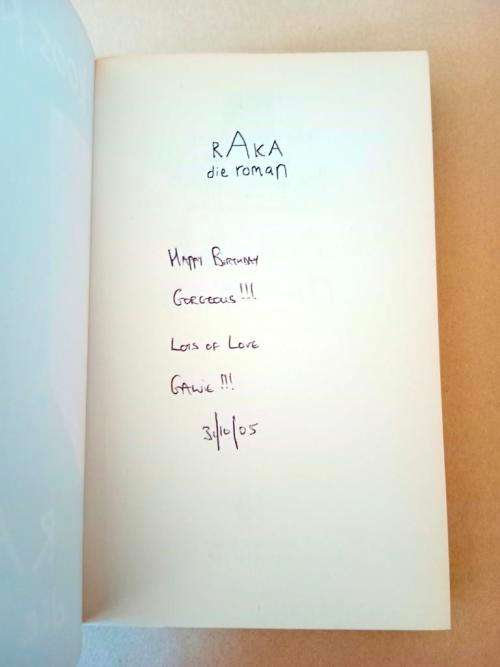 RAKA
die roman
HAPPY BIRTHDAY
GORGEOUS!!!
LOTS OF LOVE
GAWIE!!!
31/10/05